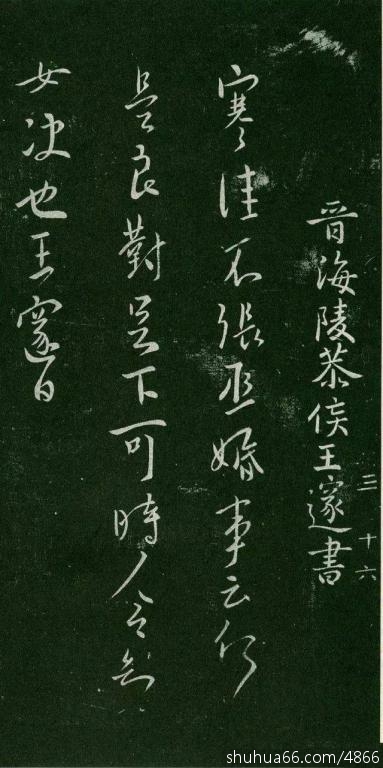 晉海陵恭侯王邃書
三 十六
寒佳不張丞婚事云何
是良對足下可時人令知
女決也王邃白
shuhua66.com/4866